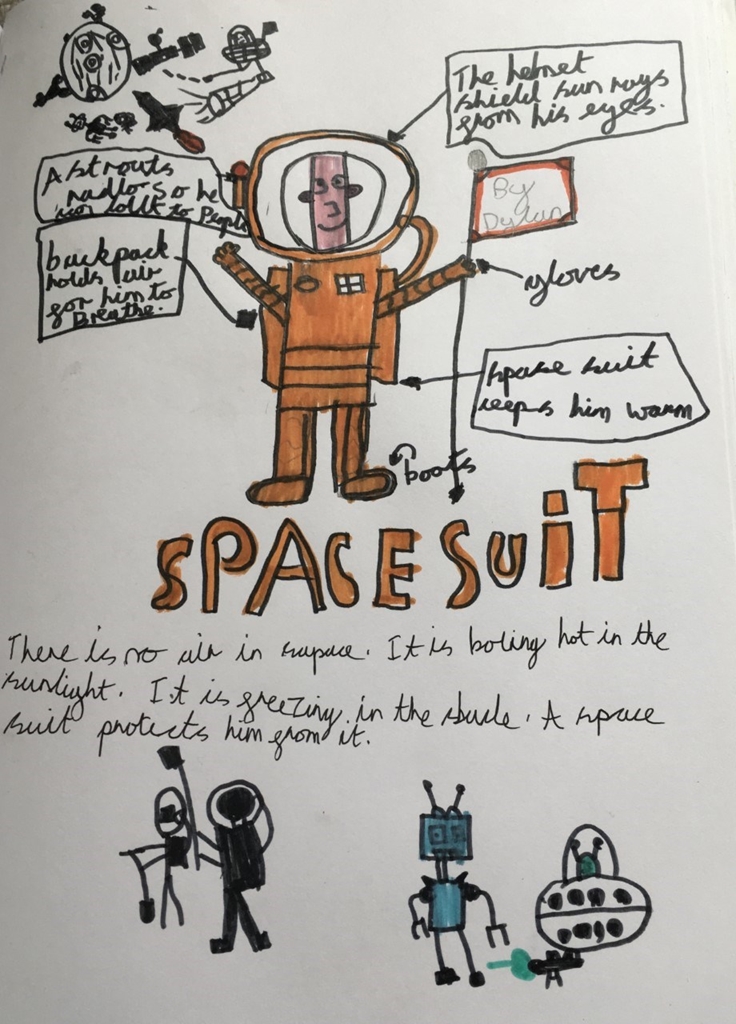 The helmet
shield sun rays
from his eyes.
Astrouts
radio so he
can to People
backpack
holds air
for him to
Breathe.
By
Dylan
gloves
space suit
keeps him warm
boots
SPACE SUIT
There is no air in supace. It is boling hot in the
sunlight. It is freezing in the shade. A space
suit protects him from it.